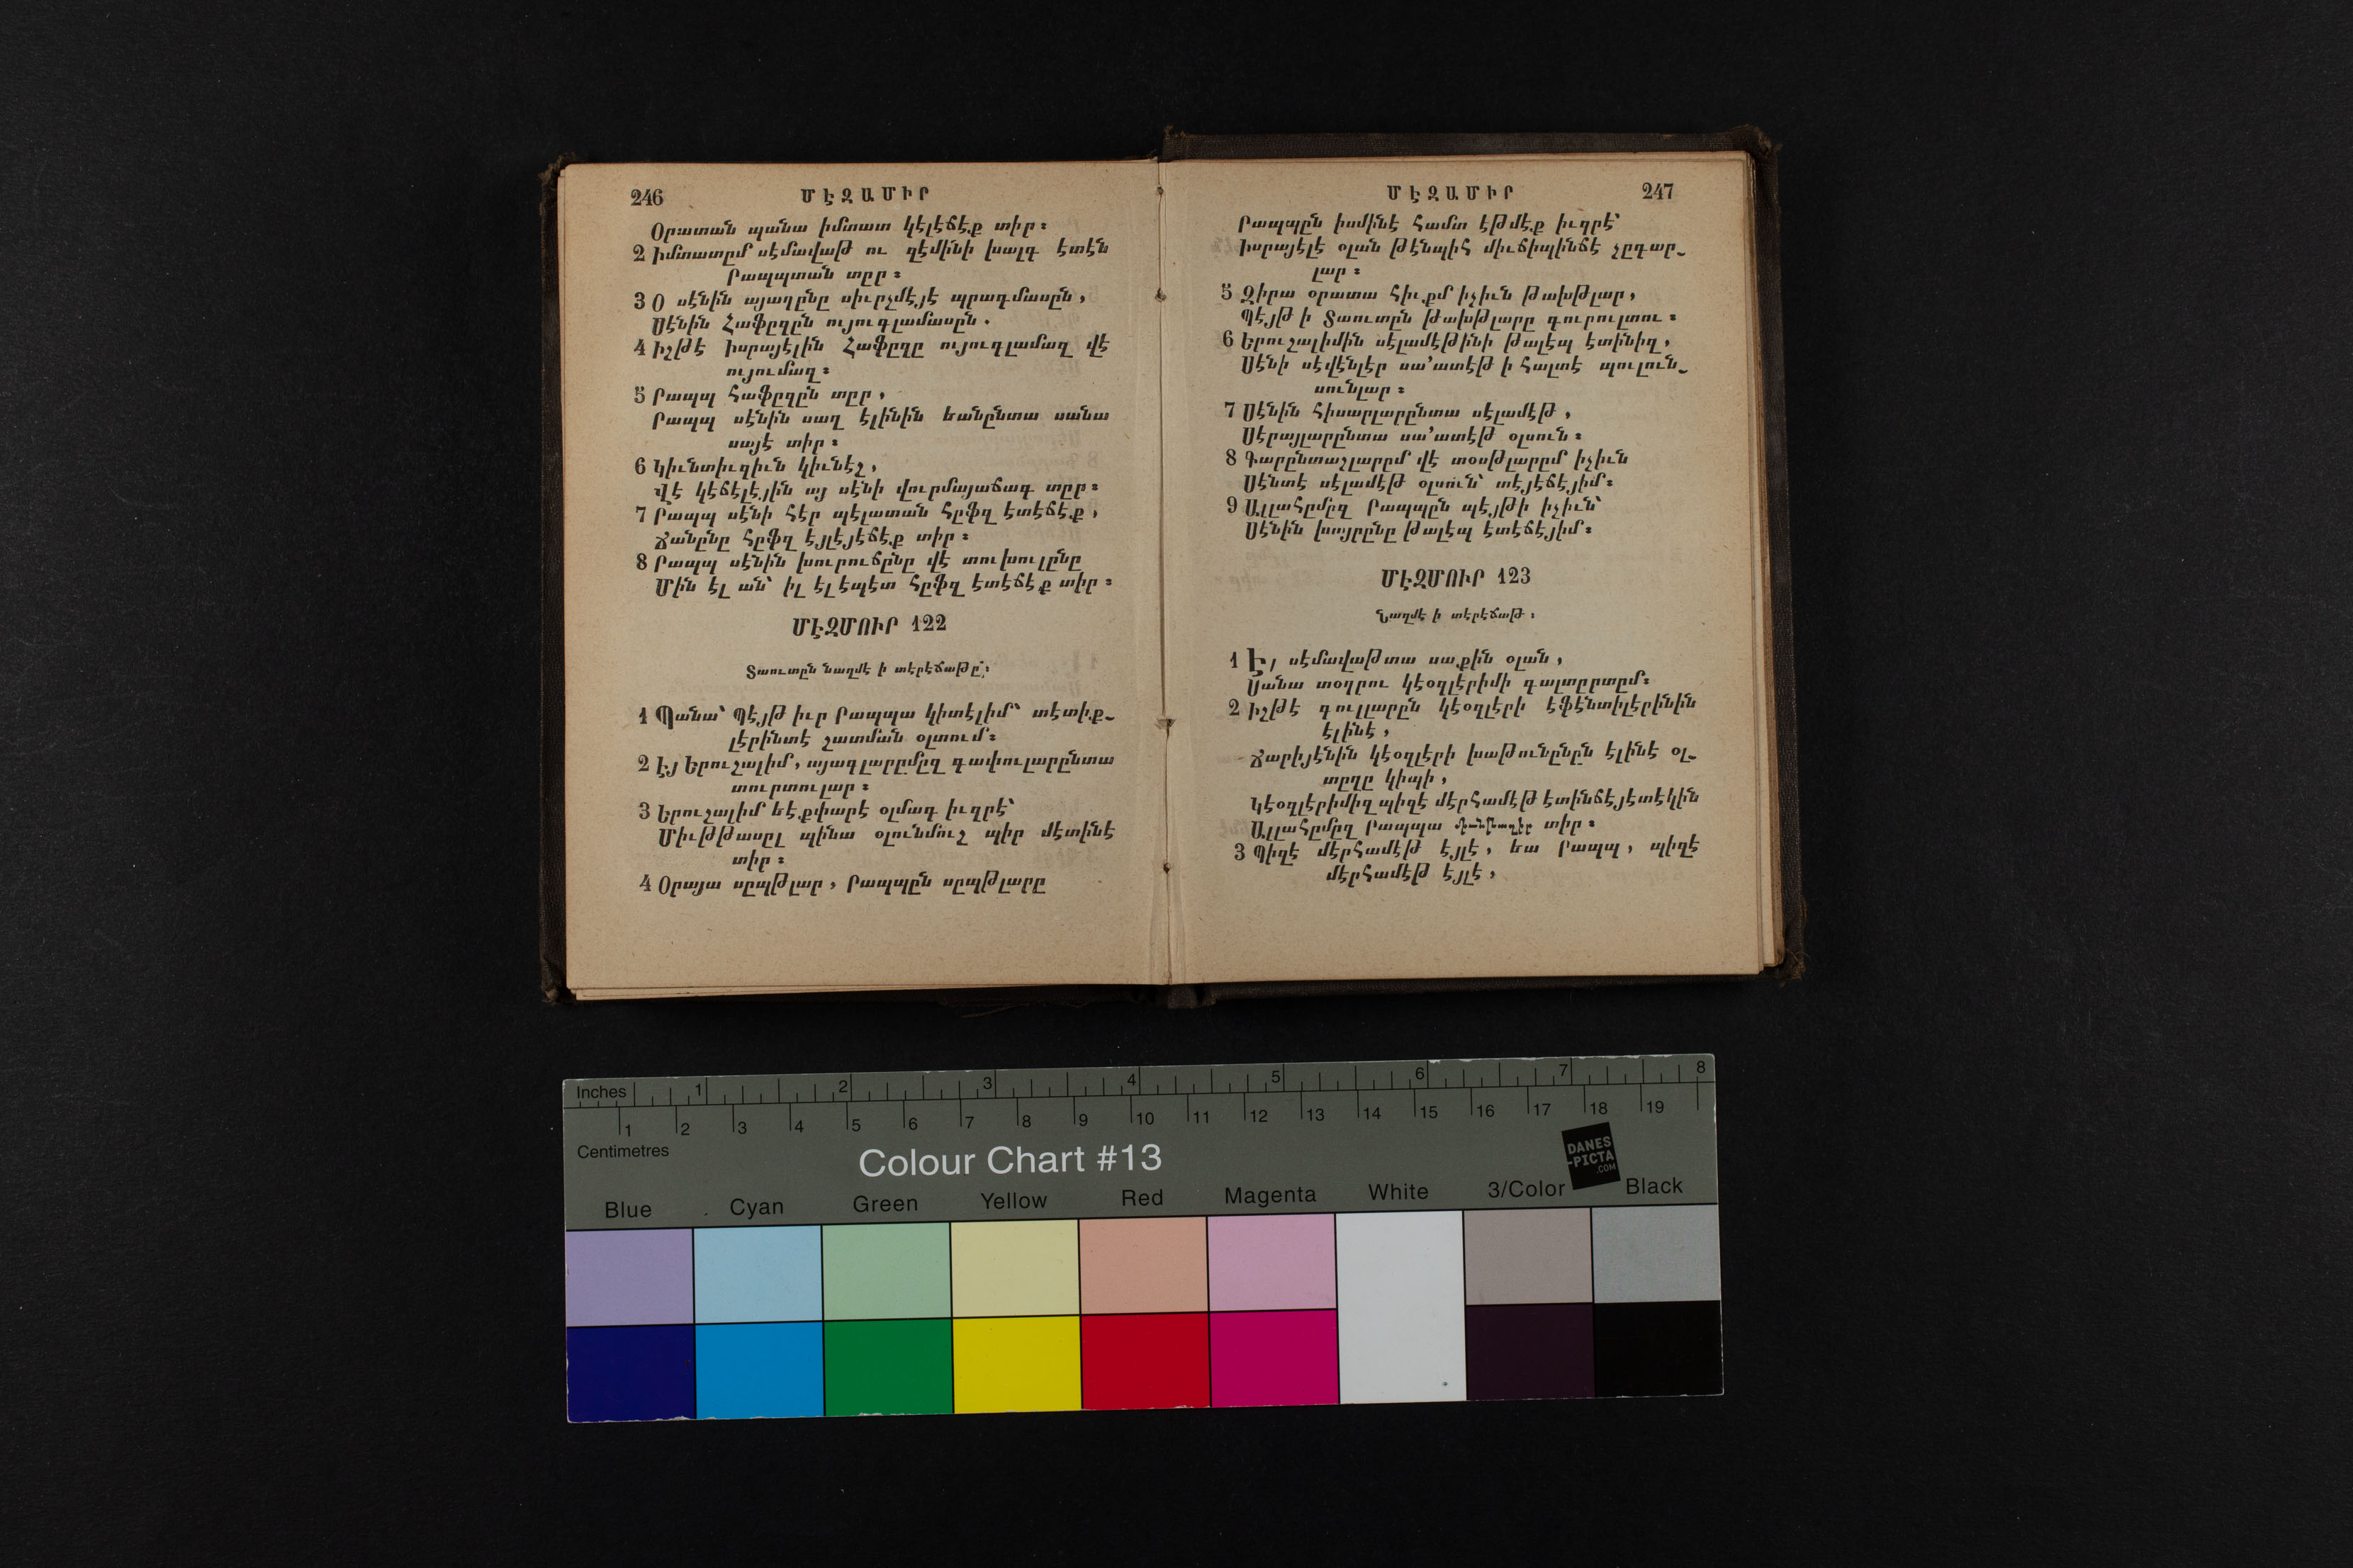 246
ՄԷԶԱՄԻՐ
Օրատան պանա իմտատ կէլէճէ֊ք տիր։
2 Իմտատըմ սէմավաթ ու զէմինի խալգ էտէն
Րապպտան տըր։
3 Օ սէնին այաղընը սիւրչմէյէ պրագմասըն,
Սէնին Հաֆըզըն ույուգլամասըն.
4 Իշթէ Իսրայէլին Հաֆըզը ույուգլամազ վէ
ույումազ։
5 Րապպ հաֆըզըն տըր,
Րապպ սէնին սաղ էլինին եանընտա սանա
սայէ տիր։
6 Կիւնտիւզիւն կիւնէշ,
Վէ կէճէլէյին այ սէնի վուրմայաճագ տըր։
7 Րապպ սէնի հէր պէլատան հըֆզ էտէճէք,
Ճանընը հըֆզ էյլէյէճէք տիր։
8 Րապպ սէնին խուրուճընը վէ տուխուլընը
Մին էլ ան՝ իլ էլ էպէտ հըֆզ էտէճէք տիր։
ՄԷԶՄՈՒՐ 122
Տաուտըն նաղմէ ի տէրէճաթը։
1 Պանա՝ Պէյթ իւր Րապպա կիտէլիմ՝ տէտիք֊
լէրինտէ շատման օլտում։
2 Էյ Երուշալիմ, այագլարըմըզ գափուլարընտա
տուրտուլար։
3 Երուշալիմ եէքփարէ օլմագ իւզրէ՝
Միւթթասըլ պինա օլունմուշ պիր մէտինէ
տիր։
4 Օրայա սըպթլար, Րապպըն սըպթլարը
ՄԷԶԱՄԻՐ
247
Րապպըն իսմինէ համտ էթմէք իւզրէ՝
Իսրայէլէ օլան թէնպիհ միւճիպինճէ չըգար֊
լար։
5 Զիրա օրատա հիւքմ իչիւն թախթլար,
Պէյթ ի Տաուտըն թախթլարը գուրուլտու։
6 Երուշալիմին սէլամէթինի թալէպ էտինիզ,
Սէնի սէվէնլէր սա՚ատէթ ի հալտէ պուլուն֊
սունլար։
7 Սէնին հիսարլարընտա սէլամէթ,
Սէրայլարընտա սա՚ատէթ օլսուն։
8 Գարընտաշլարըմ վէ տօսթլարըմ իչիւն
Սէնտէ սէլամէթ օլսուն՝ տէյէճէյիմ։
9 Ալլահըմըզ Րապպըն պէյթի իչիւն՝
Սէնին խայրընը թալէպ էտէճէյիմ։
ՄԷԶՄՈՒՐ 123
Նաղմէ ի տէրէճաթ։
1 Էյ սէմավաթտա սաքին օլան,
Սանա տօղրու կէօզլէրիմի գալտըրտըմ։
2 Իշթէ գուլլարըն կէօզլէրի էֆէնտիլէրինին
էլինէ,
Ճարիյէնին կէօզլէրի խաթունընըն էլինէ օլ֊
տըղը կիպի,
Կէօզլէրիմիզ պիզէ մէրհամէթ էտինճէյէտէկին
Ալլահըմըզ Րապպա տիր։
3 Պիզէ մէրհամէթ էյլէ, եա Րապպ, պիզէ
մէրհամէթ էյլէ,
Inches 1 2 3 4 5 6 7 8
1 2 3 4 5 6 7 8 9 10 11 12 13 14 15 16 17 18 19
Centimetres
Colour Chart #13
DANES
-PICTA
.COM
Blue Cyan Green Yellow Red Magenta White 3/Color Black